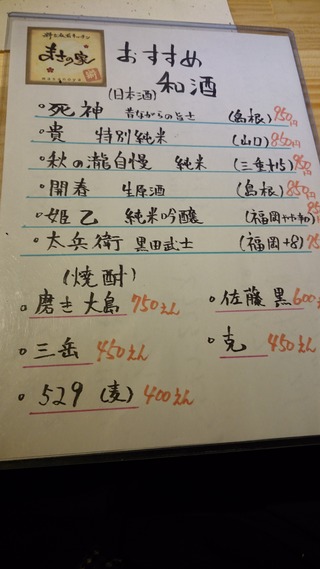 まさの家
おすすめ
和酒
(日本酒)
・死神 昔ながらの旨士 (島根) 950円
・貴 特別純米 (山口) 850円
・秋の瀧自慢 純米 (三重+15) 950
・開春 生原酒 (島根) 850円
・姫乙 純米吟醸 (福岡やや辛口)
・太兵衛 黒田武士 (福岡+8)
(焼酎)
。磨き大島 750えん 。佐藤 黒 600
。三岳 450えん 。克 450えん
。529 (麦) 400えん